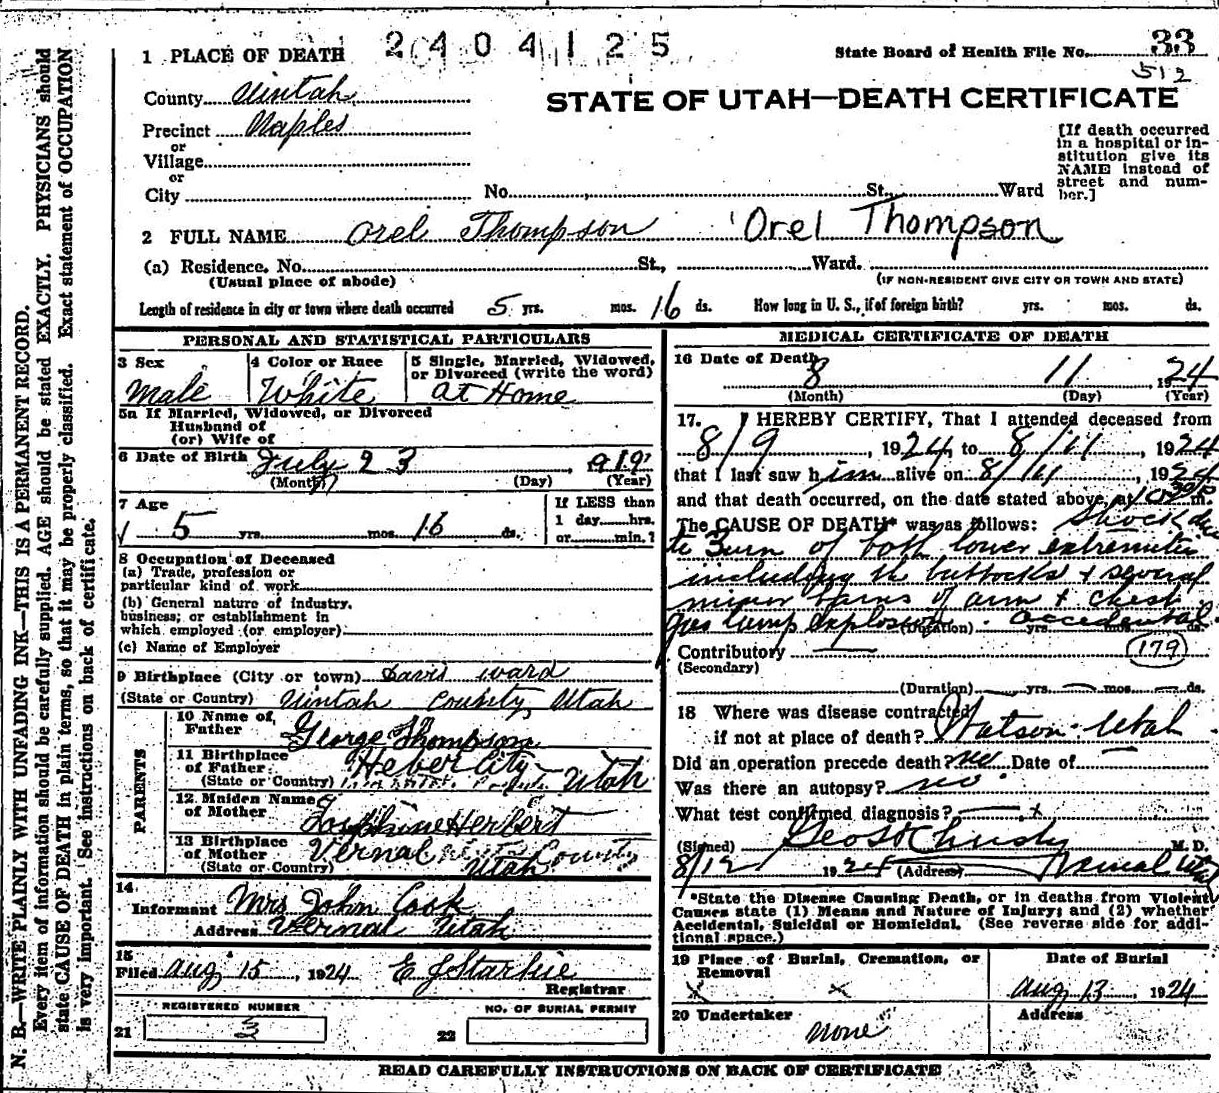 2404125
State Board of Health File No. 33
512
1 PLACE OF DEATH
County Uintah
STATE OF UTAH—DEATH CERTIFICATE
Precinct Naples
or
Village
or
City
No. St., Ward
[If death occurred
in a hospital or in-
stitution give its
NAME instead of
street and num-
ber.]
2 FULL NAME Orel Thompson Orel Thompson
(a) Residence. No. St., Ward.
(Usual place of abode)
(IF NON-RESIDENT GIVE CITY OR TOWN AND STATE)
Length of residence in city or town where death occurred 5 yrs. mos. 16 ds. How long in U. S., if of foreign birth? yrs. mos. ds.
PERSONAL AND STATISTICAL PARTICULARS
3 Sex
Male
4 Color or Race
White
5 Single, Married, Widowed,
or Divorced (write the word)
at Home
5a If Married, Widowed, or Divorced
Husband of
(or) Wife of
6 Date of Birth July 23, 1919
(Month) (Day) (Year)
7 Age
5 yrs. mos. 16 ds.
If LESS than
1 day hrs.
or min.?
8 Occupation of Deceased
(a) Trade, profession or
particular kind of work
(b) General nature of industry,
business, or establishment in
which employed (or employer)
(c) Name of Employer
9 Birthplace (City or town) Davis ward
(State or Country) Uintah County, Utah
PARENTS
10 Name of
Father George Thompson
11 Birthplace
of Father Heber City
(State or Country) Utah
12 Maiden Name
of Mother Herbert
13 Birthplace
of Mother Vernal County
(State or Country) Utah
14
Informant Mrs John Cook
Address Vernal Utah
15
Filed Aug 15, 1924 E J Starkie
Registrar
REGISTERED NUMBER
21 3
NO. OF BURIAL PERMIT
22
MEDICAL CERTIFICATE OF DEATH
16 Date of Death
8 11, 1924
(Month) (Day) (Year)
17. I HEREBY CERTIFY, That I attended deceased from
8/9, 1924, to 8/11, 1924
that I last saw him alive on 8/11, 1924
and that death occurred, on the date stated above, at m.
The CAUSE OF DEATH* was as follows: Shock due
to Burn of both lower extremities
including the buttocks + several
minor burns of arm + chest
gas lamp explosion. accidental.
(Duration) yrs. mos. ds.
Contributory —
(Secondary)
179
(Duration) yrs. mos. ds.
18 Where was disease contracted
if not at place of death? Watson - Utah
Did an operation precede death? no Date of —
Was there an autopsy? no
What test confirmed diagnosis? x
(Signed) Geo H Christy M. D.
8/12 1924 (Address) Vernal Utah
*State the Disease Causing Death, or in deaths from Violent
Causes state (1) Means and Nature of Injury; and (2) whether
Accidental, Suicidal or Homicidal. (See reverse side for addi-
tional space.)
19 Place of Burial, Cremation, or
Removal
x x
Date of Burial
Aug 13, 1924
20 Undertaker
none
Address
READ CAREFULLY INSTRUCTIONS ON BACK OF CERTIFICATE
N. B.—WRITE PLAINLY WITH UNFADING INK—THIS IS A PERMANENT RECORD.
Every item of information should be carefully supplied. AGE should be stated EXACTLY. PHYSICIANS should
state CAUSE OF DEATH in plain terms, so that it may be properly classified. Exact statement of OCCUPATION
is very important. See instructions on back of certificate.